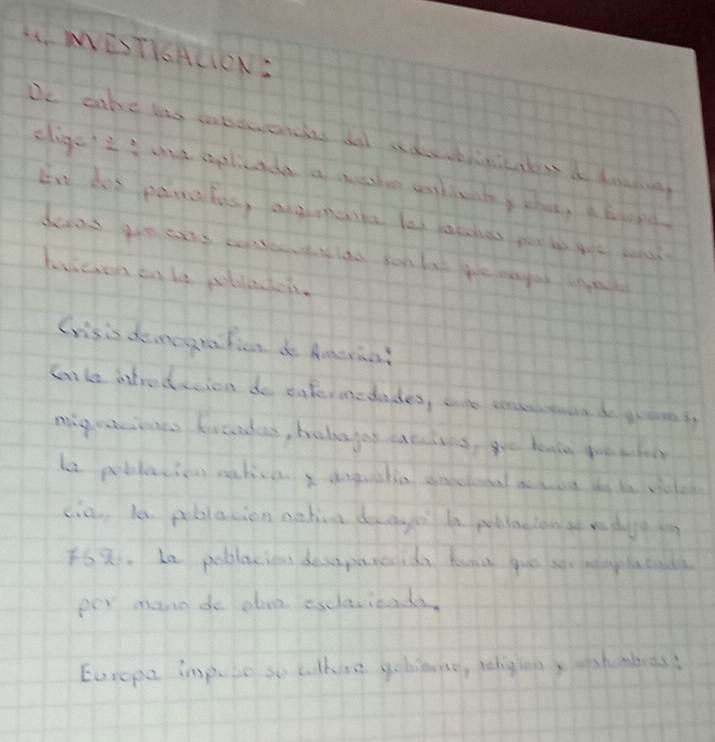 INVESTIGACION:
De entre las consecuencias del descubrimiento de America,
elige 2: una aplicada a nuestro continente y otra, a Europa.
En dos parrafos, argumenta las razones por las que consi-
deras que esas consecuencias son las que mayor impacto
tuvieron en la poblacion.
Crisis demografica de America:
Con la introduccion de enfermedades, como consecuencia de guerras,
migraciones forzadas, trabajos excesivos, que tenia que sufrir
la poblacion nativa y angustia emocional a causa de la violen-
cia, la poblacion nativa decayó la poblacion se redujo un
75%. La poblacion desaparecida tenia que ser remplazada
por mano de obra esclavizada.
Europa impuso su cultura gobierno, religion y costumbres: